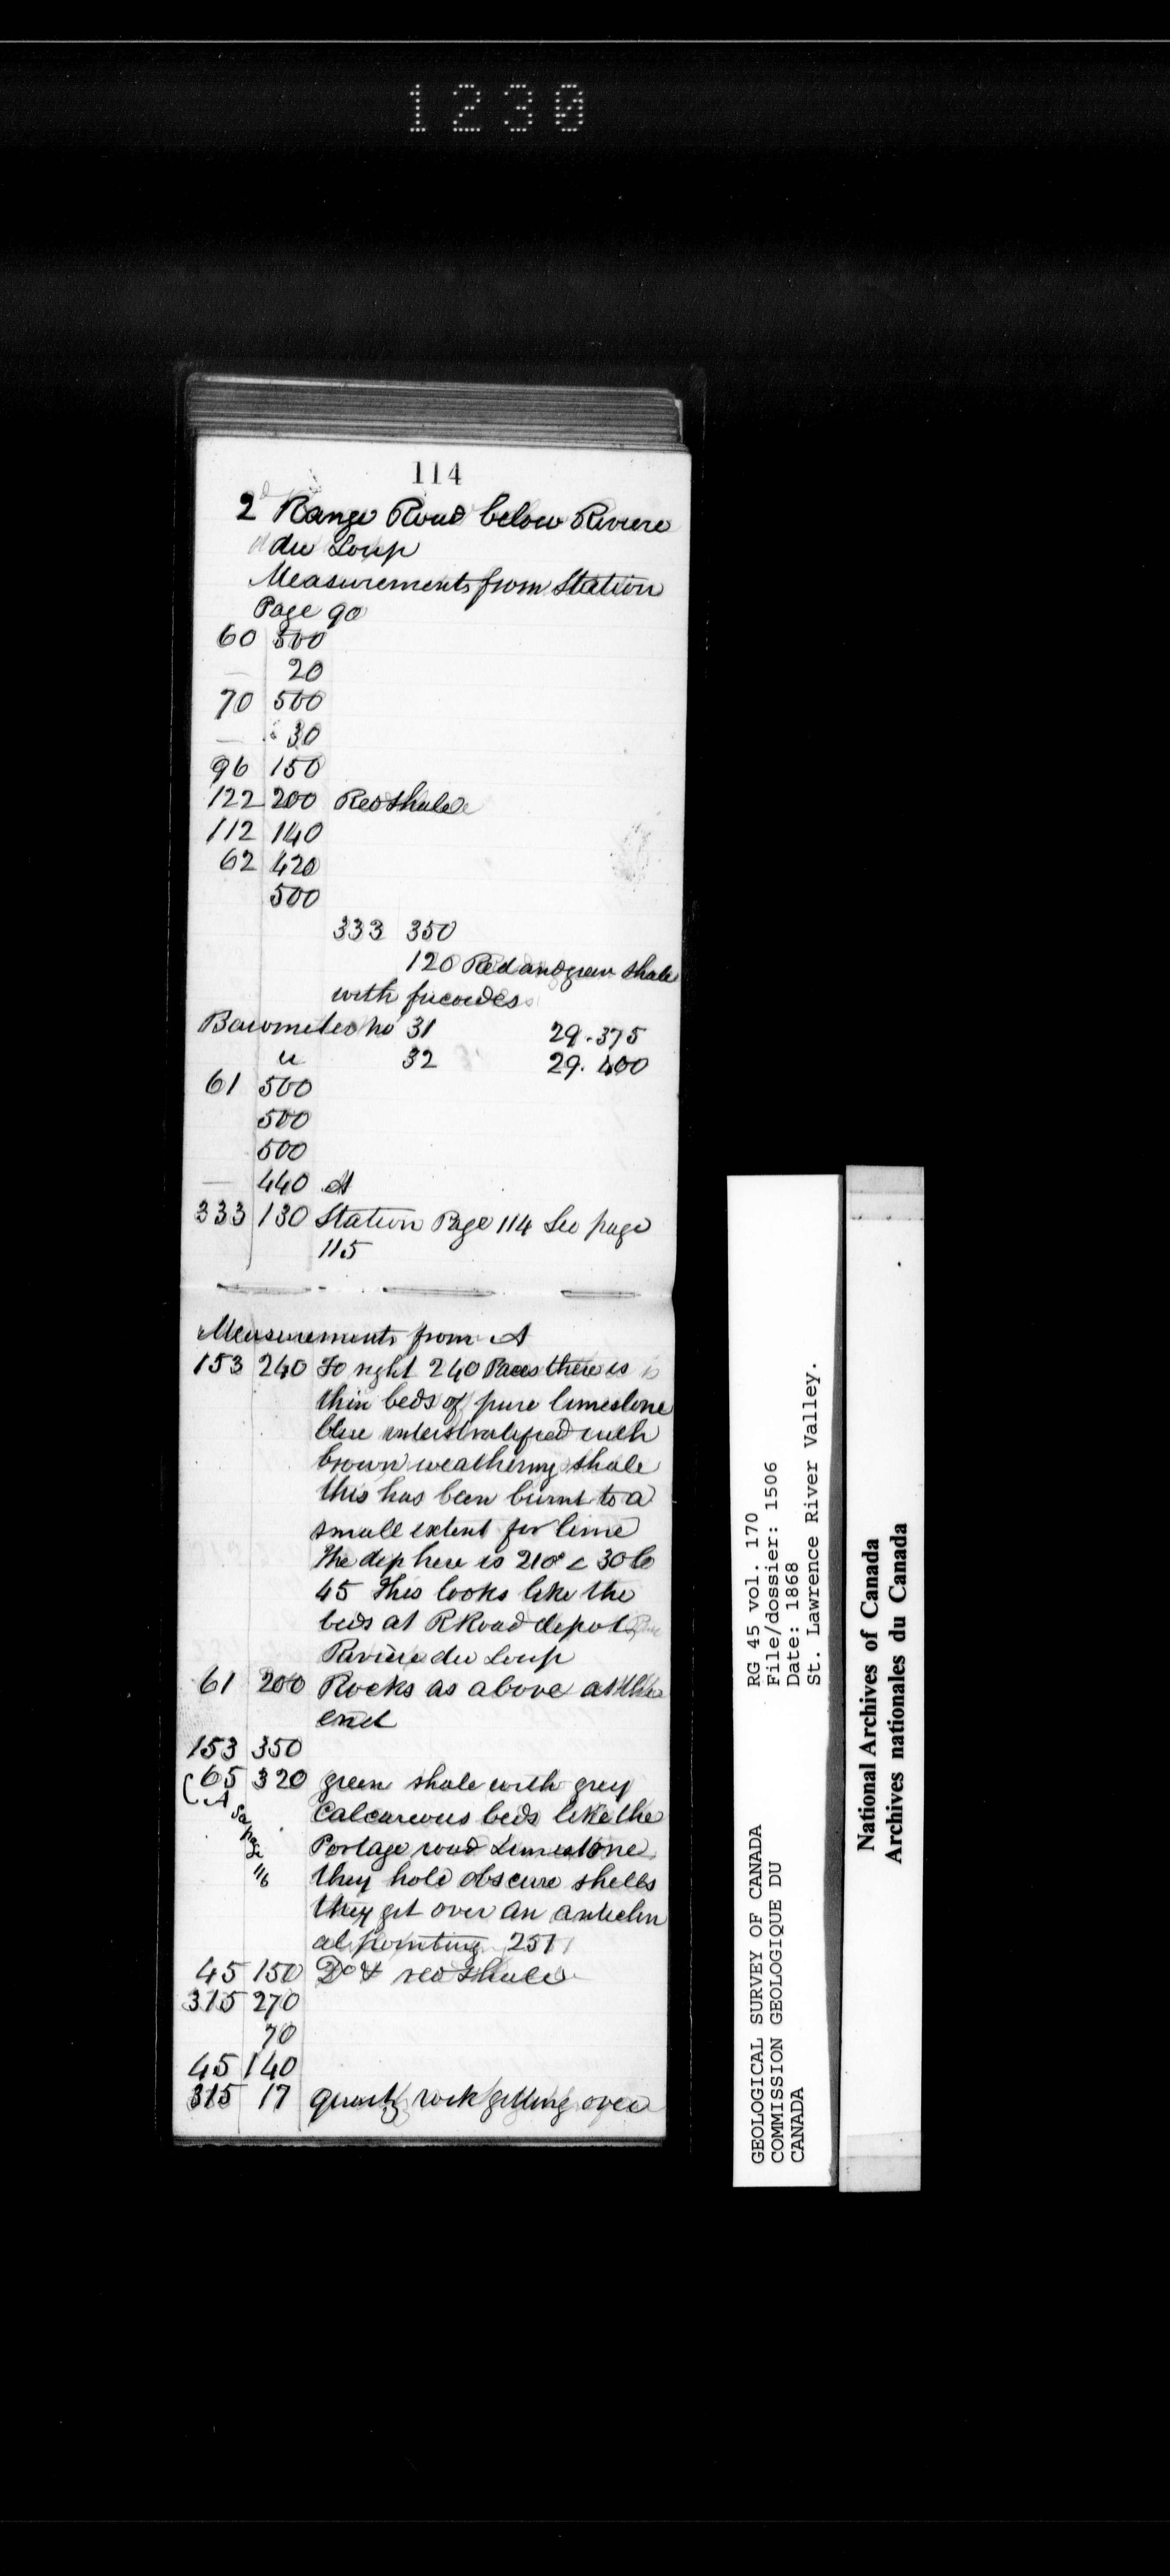 1230
114
2d Range Road below Riviere
du Loup
Measurements from Station
Page 90
60 500
— 20
70 500
— 30
96 150
122 200 Red shale
112 140
62 420
500
333 350
120 Red and green shale
with fucoides
Barometer no 31 29.375
" 32 29.400
61 500
500
500
— 440 A
333 130 Station Page 114 See page
115
Measurements from A
153 240 To right 240 Paces there is
thin beds of pure limestone
blue interstratified with
brown weathering shale
this has been burnt to a
small extent for lime
The dip here is 210° < 30 to
45 This looks like the
beds at R Road depot
Riviere du Loup
61 200 Rocks as above at the
end
153 350
65 320 green shale with grey
A See page 116
Calcareous beds like the
Portage road Limestone
they hold obscure shells
they get over an anticlin
al pointing 251
45 150 Do & red shale
315 270
70
45 140
315 17 quartz rock getting over
GEOLOGICAL SURVEY OF CANADA
COMMISSION GEOLOGIQUE DU
CANADA
RG 45 vol. 170
File/dossier: 1506
Date: 1868
St. Lawrence River Valley.
National Archives of Canada
Archives nationales du Canada